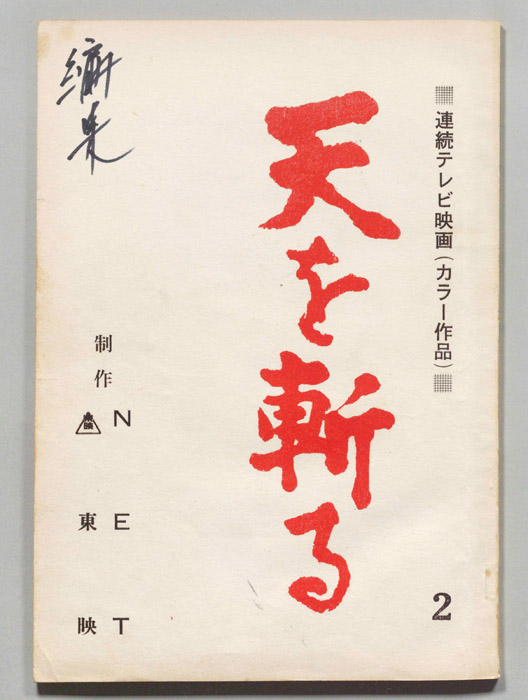 連続テレビ映画(カラー作品)
2
天を斬る
制作
NET
東映